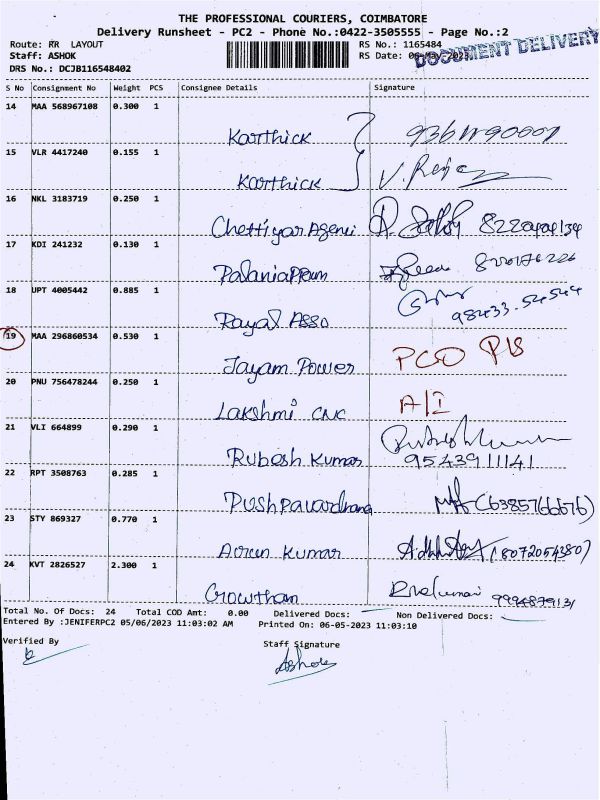 THE PROFESSIONAL COURIERS, COIMBATORE
Delivery Runsheet - PC2 - Phone No.:0422-3505555 - Page No.:2
Route: RR LAYOUT RS No.: 1165484
Staff: ASHOK RS Date:
DOCUMENT DELIVERY
DRS No.: DCJB116548402
S No Consignment No Weight PCS Consignee Details Signature
14 MAA 568967108 0.300 1
Karthick
15 VLR 4417240 0.155 1
Karthick V. Reja
16 NKL 3183719 0.250 1
Chettiyar Agenci
17 KDI 241232 0.130 1
Palaniappan
18 UPT 4005442 0.885 1
Rayal Asso 98433.54544
19 MAA 296860534 0.530 1
Jayam Power PCO P/S
20 PNU 756478244 0.250 1
Lakshmi CNC A/I
21 VLI 664899 0.290 1
Rubesh Kumar 9543911141
22 RPT 3508763 0.285 1
Pushpavardhana
23 STY 869327 0.770 1
Arun Kumar (8072054380)
24 KVT 2826527 2.300 1
Growtham 9994879131
Total No. Of Docs: 24 Total COD Amt: 0.00 Delivered Docs: Non Delivered Docs:
Entered By :JENIFERPC2 05/06/2023 11:03:02 AM Printed On: 06-05-2023 11:03:10
Verified By Staff Signature
Ashok